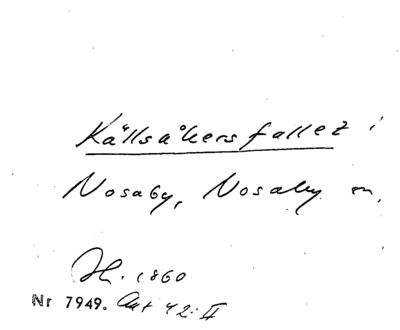 Källsåkersfallet i
Nosaby, Nosaby sn,
1860
Nr 7949. 42:II